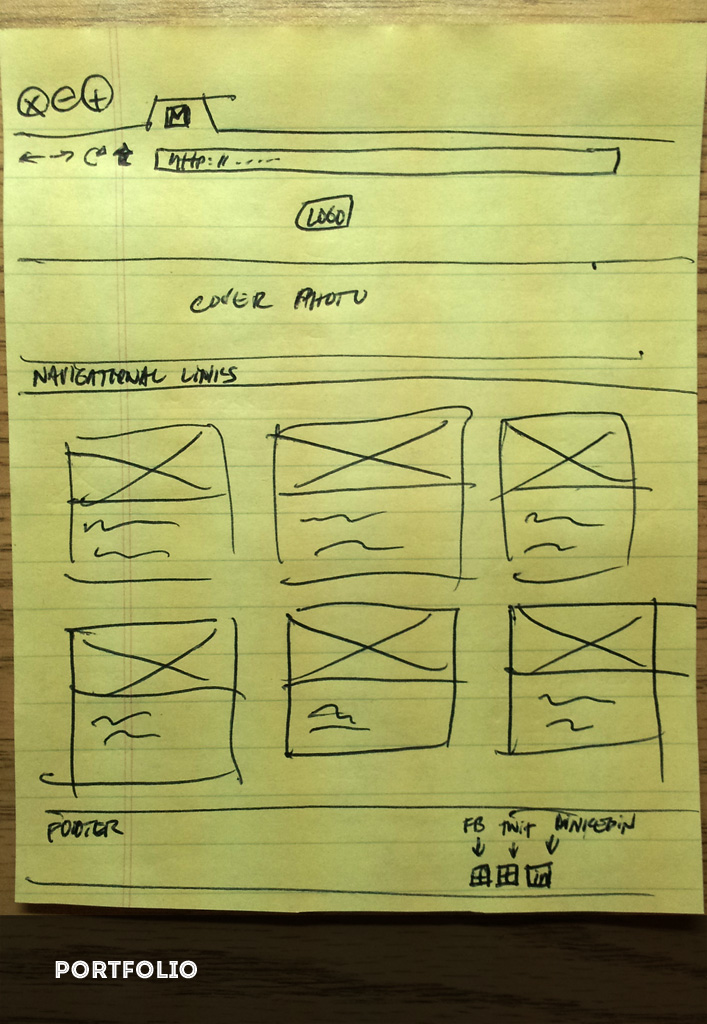 M
http://.....
LOGO
COVER PHOTO
NAVIGATIONAL LINKS
FOOTER
FB twit LINKEDIN
in
PORTFOLIO